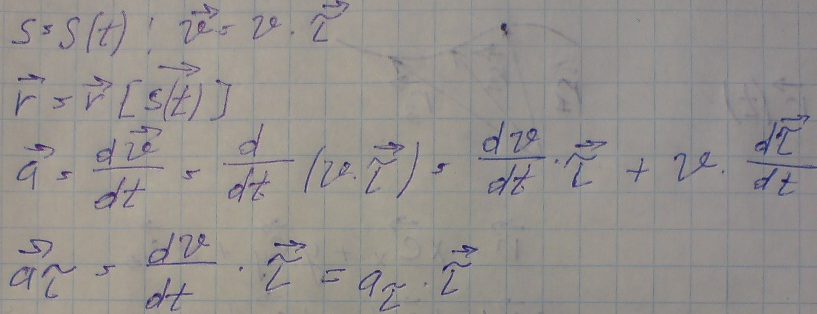 S = S(t) : v⃗ = v · τ⃗
r⃗ = r⃗ [S(t)⃗]
a⃗ = dv⃗/dt = d/dt (v · τ⃗) = dv/dt · τ⃗ + v · dτ⃗/dt
a⃗τ = dv/dt · τ⃗ = aτ · τ⃗